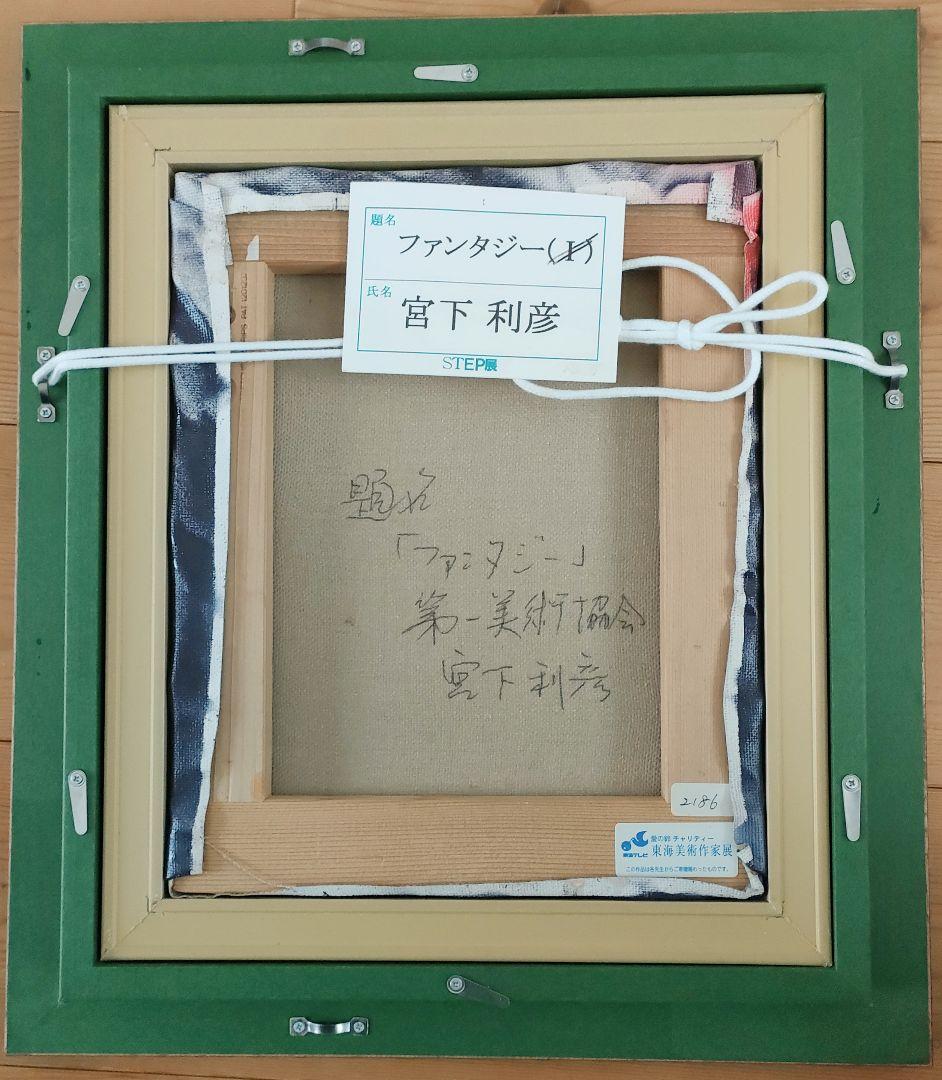 題名
ファンタジー(I)
氏名
宮下 利彦
STEP展
題名
「ファンタジー」
第一美術協会
宮下利彦
2186
愛の鈴 チャリティー
東海テレビ
東海美術作家展
この作品は各先生からご寄贈賜わったものです。